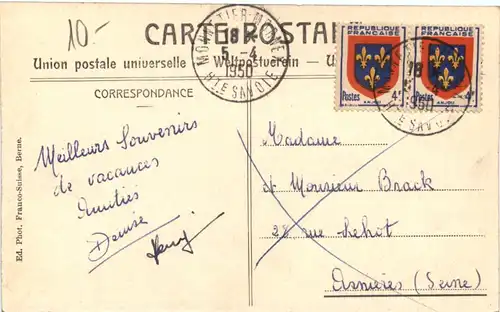 10-
CARTE POSTALE
Union postale universelle — Weltpostverein — U
CORRESPONDANCE
18
5-4
1950
HTE SAVOIE
REPUBLIQUE FRANCAISE
REPUBLIQUE FRANCAISE
Postes 4F
ANJOU
Postes 4F
ANJOU
18
1950
HTE SAVOIE
Meilleurs Souvenirs
de vacances
Amitiés
Denise
Madame
et Monsieur Brack
28 rue
Asnières (Seine)
Ed. Phot. Franco-Suisse, Berne.